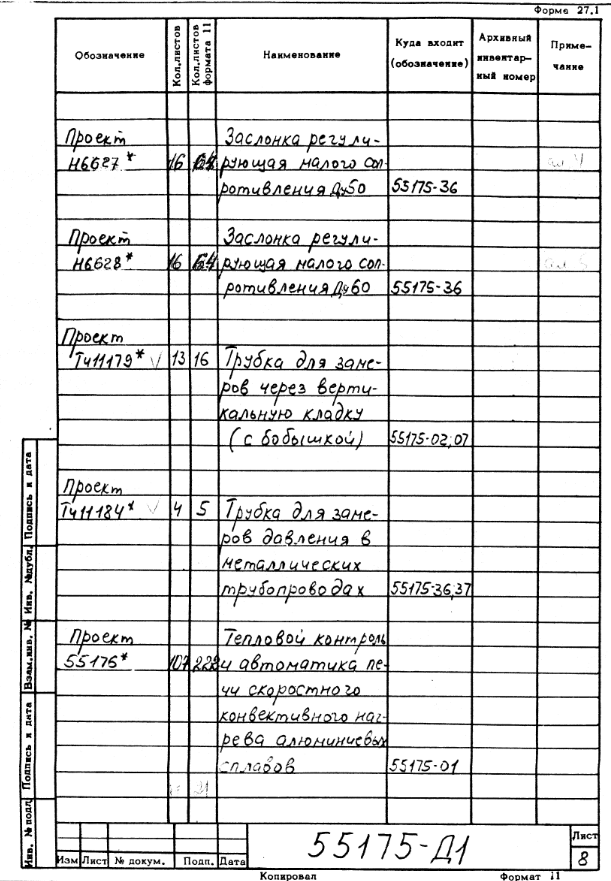 Форма 27.1
Обозначение
Кол.листов
Кол.листов формата 11
Наименование
Куда входит (обозначение)
Архивный инвентар- ный номер
Приме- чание
Проект Заслонка регули-
Н6627* 16 64 рующая малого соп-
ротивления Ду50 55175-36
Проект Заслонка регули-
Н6628* 16 64 рующая малого соп-
ротивления Ду60 55175-36
Проект
Т411179* √ 13 16 Трубка для заме-
ров через верти-
кальную кладку
(с бобышкой) 55175-02,07
Проект
Т411184* √ 4 5 Трубка для заме-
ров давления в
металлических
трубопроводах 55175-36,37
Проект Тепловой контроль
55176* 107 222 и автоматика пе-
чи скоростного
конвективного наг-
рева алюминиевых
сплавов 55175-01
Инв. № подл.
Подпись и дата
Взам.инв. №
Инв. №дубл.
Подпись и дата
Изм Лист № докум. Подп. Дата
55175-Д1
Лист
8
Копировал Формат 11